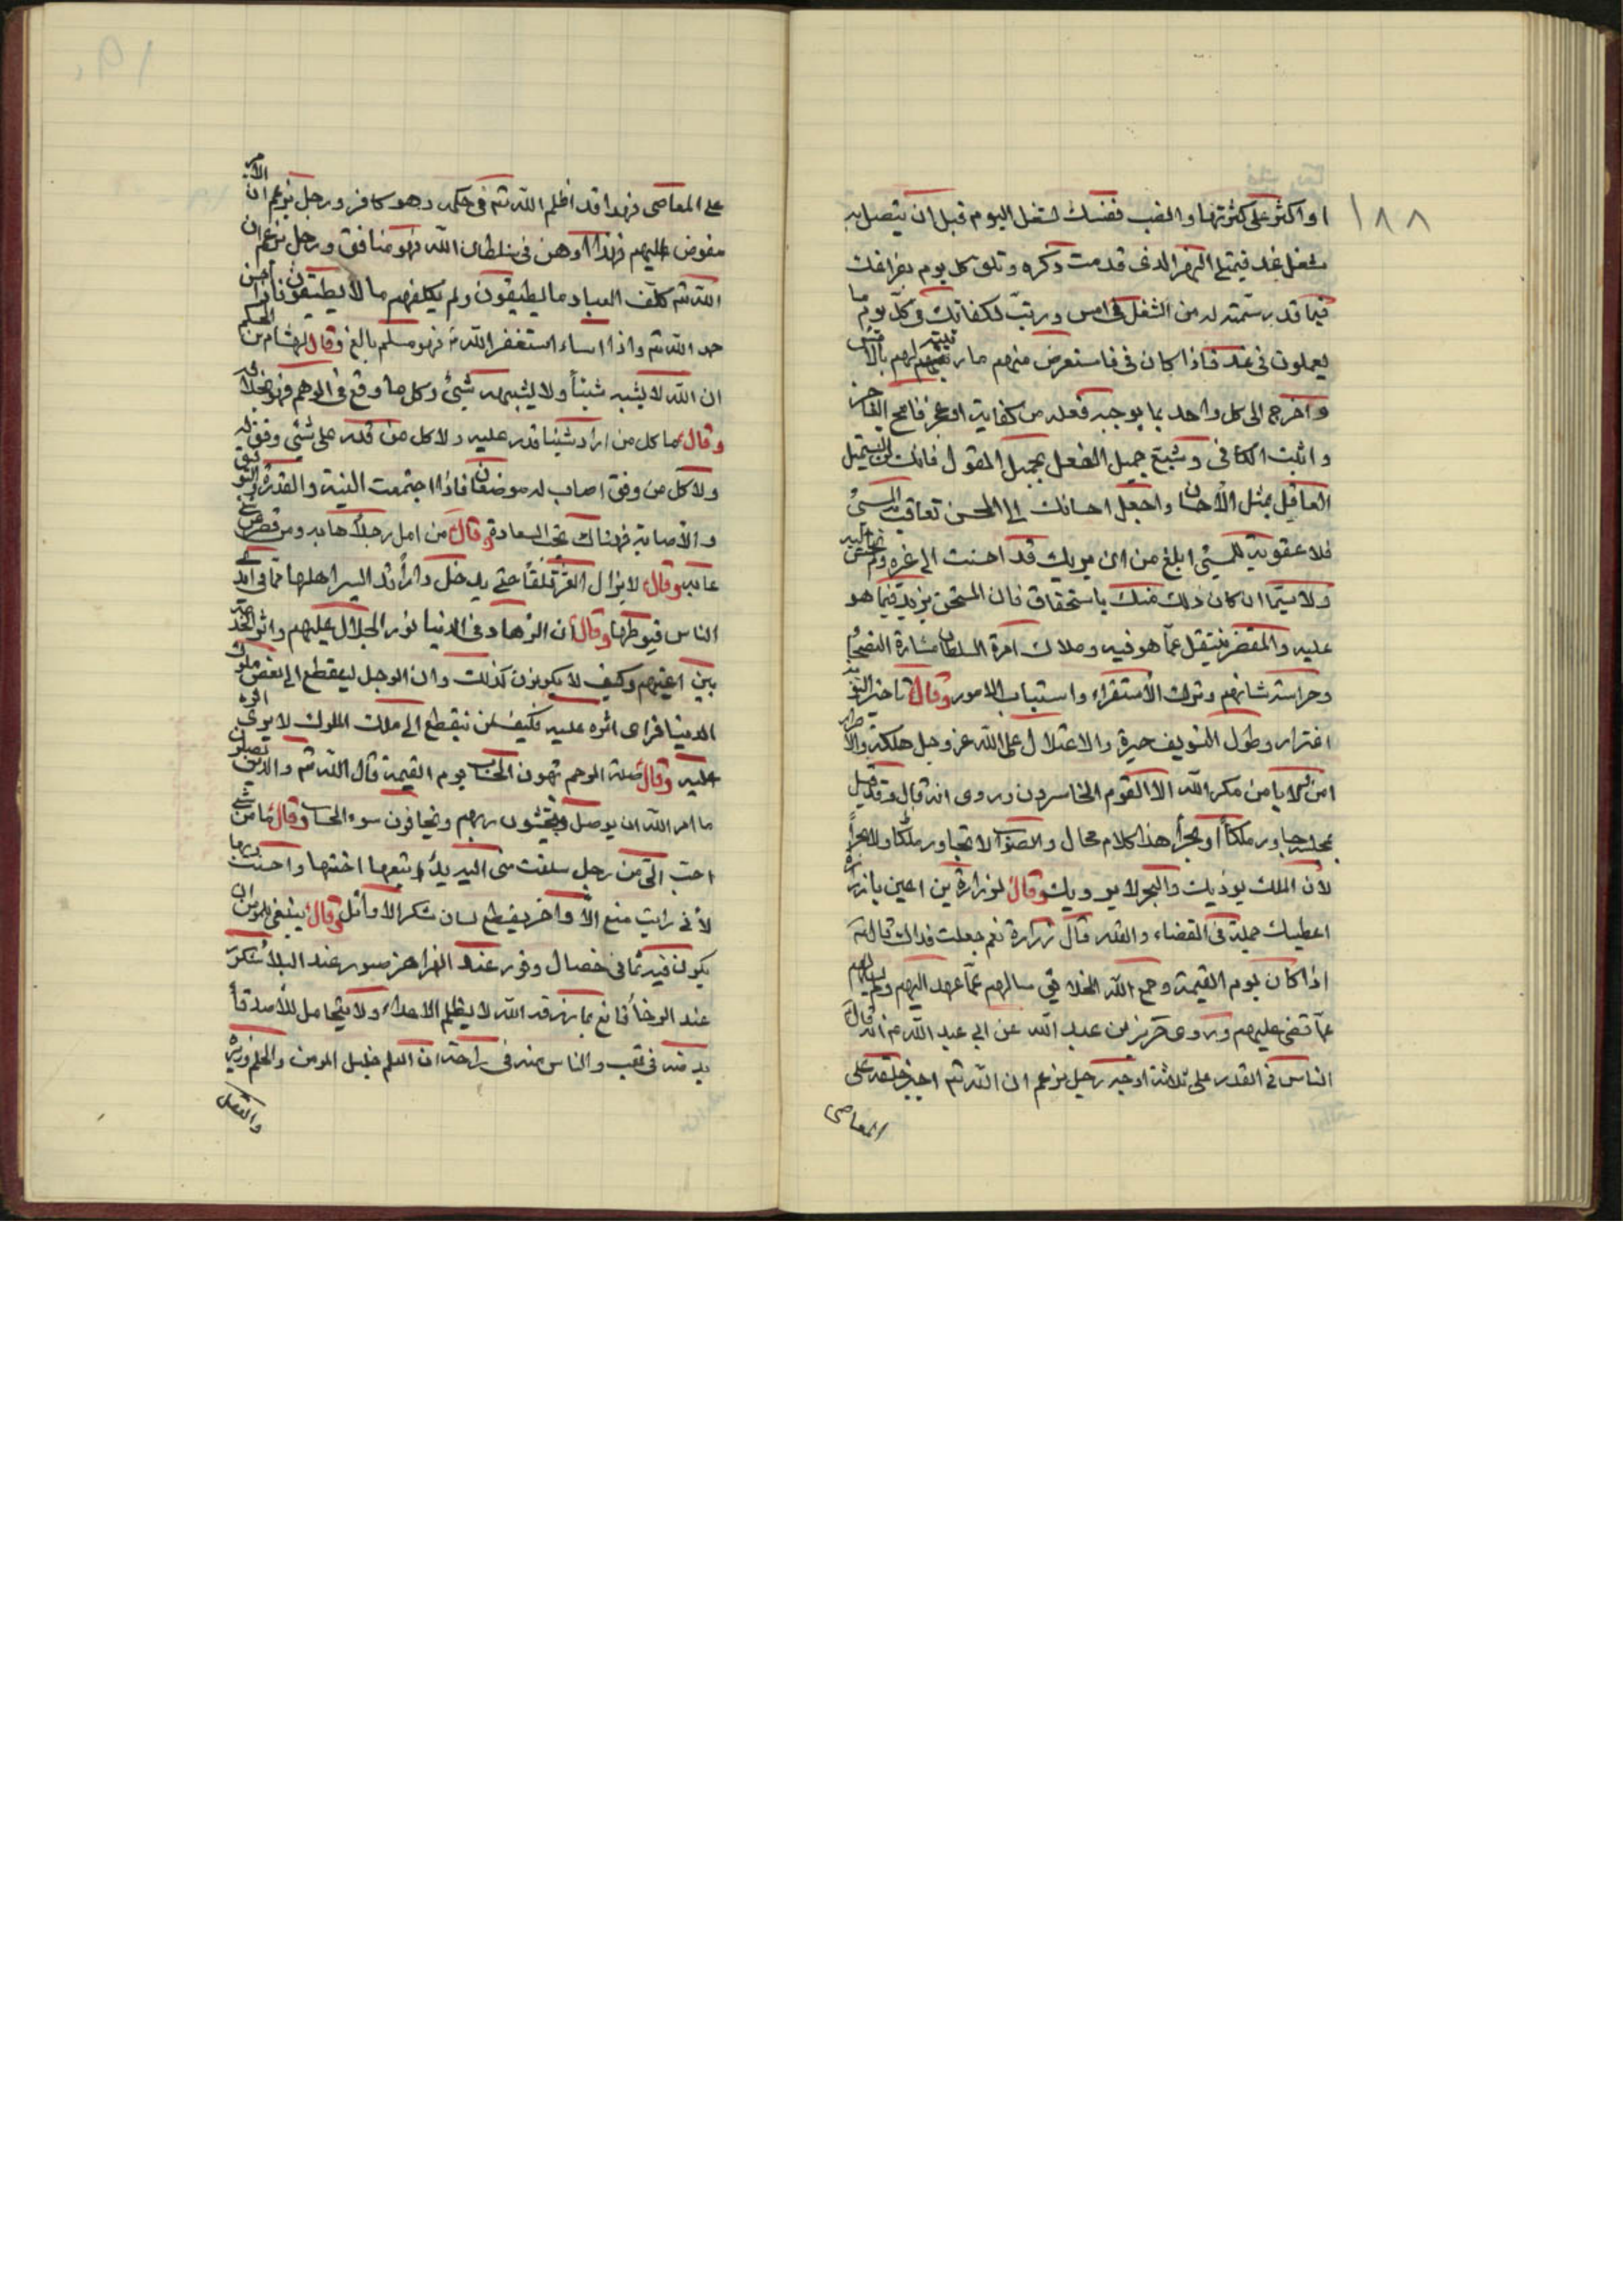 ١٨٨
او اكثر على كثرتها وانصب نفسك لشغل اليوم قبل ان يتصل به
شغل غد فيمتلئ النهر الذى قدمت ذكره وتلق كل يوم بفراغك
فيما قد رسمته له من الشغل فى امس ورتب لكفاتك فى كل يوم ما
يعملون فى غد فاذا كان فى فاستعرض منهم ما رتبته لهم بالامس
واخرج الى كل واحد بما يوجبه فعله من كفاية او عجز فامح العاجز
واثبت الكافى وشيع جميل الفعل بجميل القول فانك لن تستميل
العاقل بمثل الأحسان واجعل احسانك الى المحسن تعاقب به المسئ
فلا عقوبة للمسئ ابلغ من ان يريك قد احسنت الى غيره ولم تحسن اليه
ولا سيما ان كان ذلك منك باستحقاق فان المستحق يزيد فيما هو
عليه والمقصر ينتقل عما هو فيه وملاك امرة السلطان مشاورة النصحا
وحراسة شانهم وترك الأستقراء واستتباب الامور وقال تاخير التوبة
اغترار وطول التسويف حيرة والاعتلال على الله عز وجل هلكة والاصرار
امن ولا يامن مكر الله الا القوم الخاسرون وروى انه قال وقد قيل
بمجلسه جاور ملكاً او بحراً هذا كلام محال والصواب لا تجاور ملكا ولا بحراً
لأن الملك يوذيك والبحر لا يرويك وقال لزرارة بن اعين يا زرارة
اعطيك جملة فى القضاء والقدر قال زرارة نعم جعلت فداك قال له
اذا كان يوم القيمة وجمع الله الخلايق سالهم عما عهد اليهم ولم يسالهم
عما قضى عليهم وروى حريز بن عبد الله عن ابى عبد الله ع انه قال
الناس فى القدر على ثلاثة اوجه رجل يزعم ان الله تع اجبر خلقه على
المعاصى
١٩٠
على المعاصى فهذا قد اظلم الله تع فى حكمه وهو كافر ورجل يزعم ان الأمر
مفوض اليهم فهذا اوهن فى سلطان الله فهو منافق ورجل يزعم ان
الله تع كلف العباد ما يطيقون ولم يكلفهم ما لا يطيقون فاذا احسن
حمد الله تع واذا اساء استغفر الله تع فهو مسلم بالغ وقال لهشام بن الحكم
ان الله لا يشبه شيئاً ولا يشبهه شئ وكل ما وقع فى الوهم فهو بخلافه
وقال ما كل من اراد شيئا قدر عليه ولا كل من قدر على شئ وفق له
ولا كل من وفق اصاب له موضعا فاذا اجتمعت النية والقدرة والتوفيق
والأصابة فهناك تجب السعادة وقال من امل رجلاً هابه ومن قصر عن شئ
عابه وقال لا يزال العز قلقاً حتى يدخل داراً قد ايس اهلها مما فى ايدى
الناس فيوطنها وقال ان الزهاد فى الدنيا نور الجلال عليهم واثر الخدمة
بين اعينهم وكيف لا يكونون كذلك وان الرجل لينقطع الى بعض ملوك
الدنيا فيرى اثره عليه فكيف لمن ينقطع الى ملك الملوك لا يرى اثره
عليه وقال صلة الرحم تهون الحساب يوم القيمة قال الله تع والذين يصلون
ما امر الله ان يوصل ويخشون ربهم ويخافون سوء الحساب وقال ما من شئ
احب الى من رجل سلفت منى اليه يد اتبعها اختها واحسنت ربها
لأنى رايت منع الأواخر يقطع لسان شكر الاوائل وقال ينبغى للمومن ان
يكون فيه ثمانى خصال وقور عند الهزاهز صبور عند البلا شكور
عند الرخا قانع بما رزقه الله لا يظلم الاعداء ولا يتحامل للأصدقا
بدنه فى تعب والناس منه فى راحة ان العلم خليل المومن والحلم وزيره
والعقل